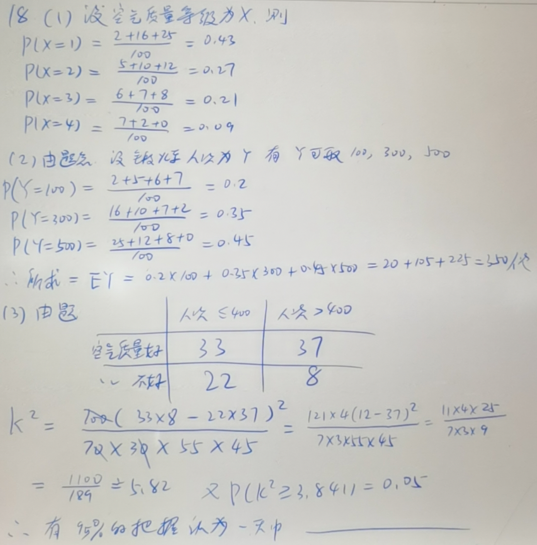 18 (1) 设空气质量等级为X, 则
P(X=1) = \frac{2+16+25}{100} = 0.43
P(X=2) = \frac{5+10+12}{100} = 0.27
P(X=3) = \frac{6+7+8}{100} = 0.21
P(X=4) = \frac{7+2+0}{100} = 0.09
(2) 由题意 设 人次为Y 有 Y可取 100, 300, 500
P(Y=100) = \frac{2+5+6+7}{100} = 0.2
P(Y=300) = \frac{16+10+7+2}{100} = 0.35
P(Y=500) = \frac{25+12+8+0}{100} = 0.45
∴ 所求 = EY = 0.2×100 + 0.35×300 + 0.45×500 = 20+105+225 = 350
(3) 由题
人次 ≤400 人次 >400
空气质量好 33 37
〃 不好 22 8
K² = \frac{100(33×8-22×37)^2}{70×30×55×45} = \frac{121×4(12-37)^2}{7×3×55×45} = \frac{11×4×25}{7×3×9}
= \frac{1100}{189} ≐ 5.82 又 P(K²≥3.841) = 0.05
∴ 有 95% 的把握认为一天中